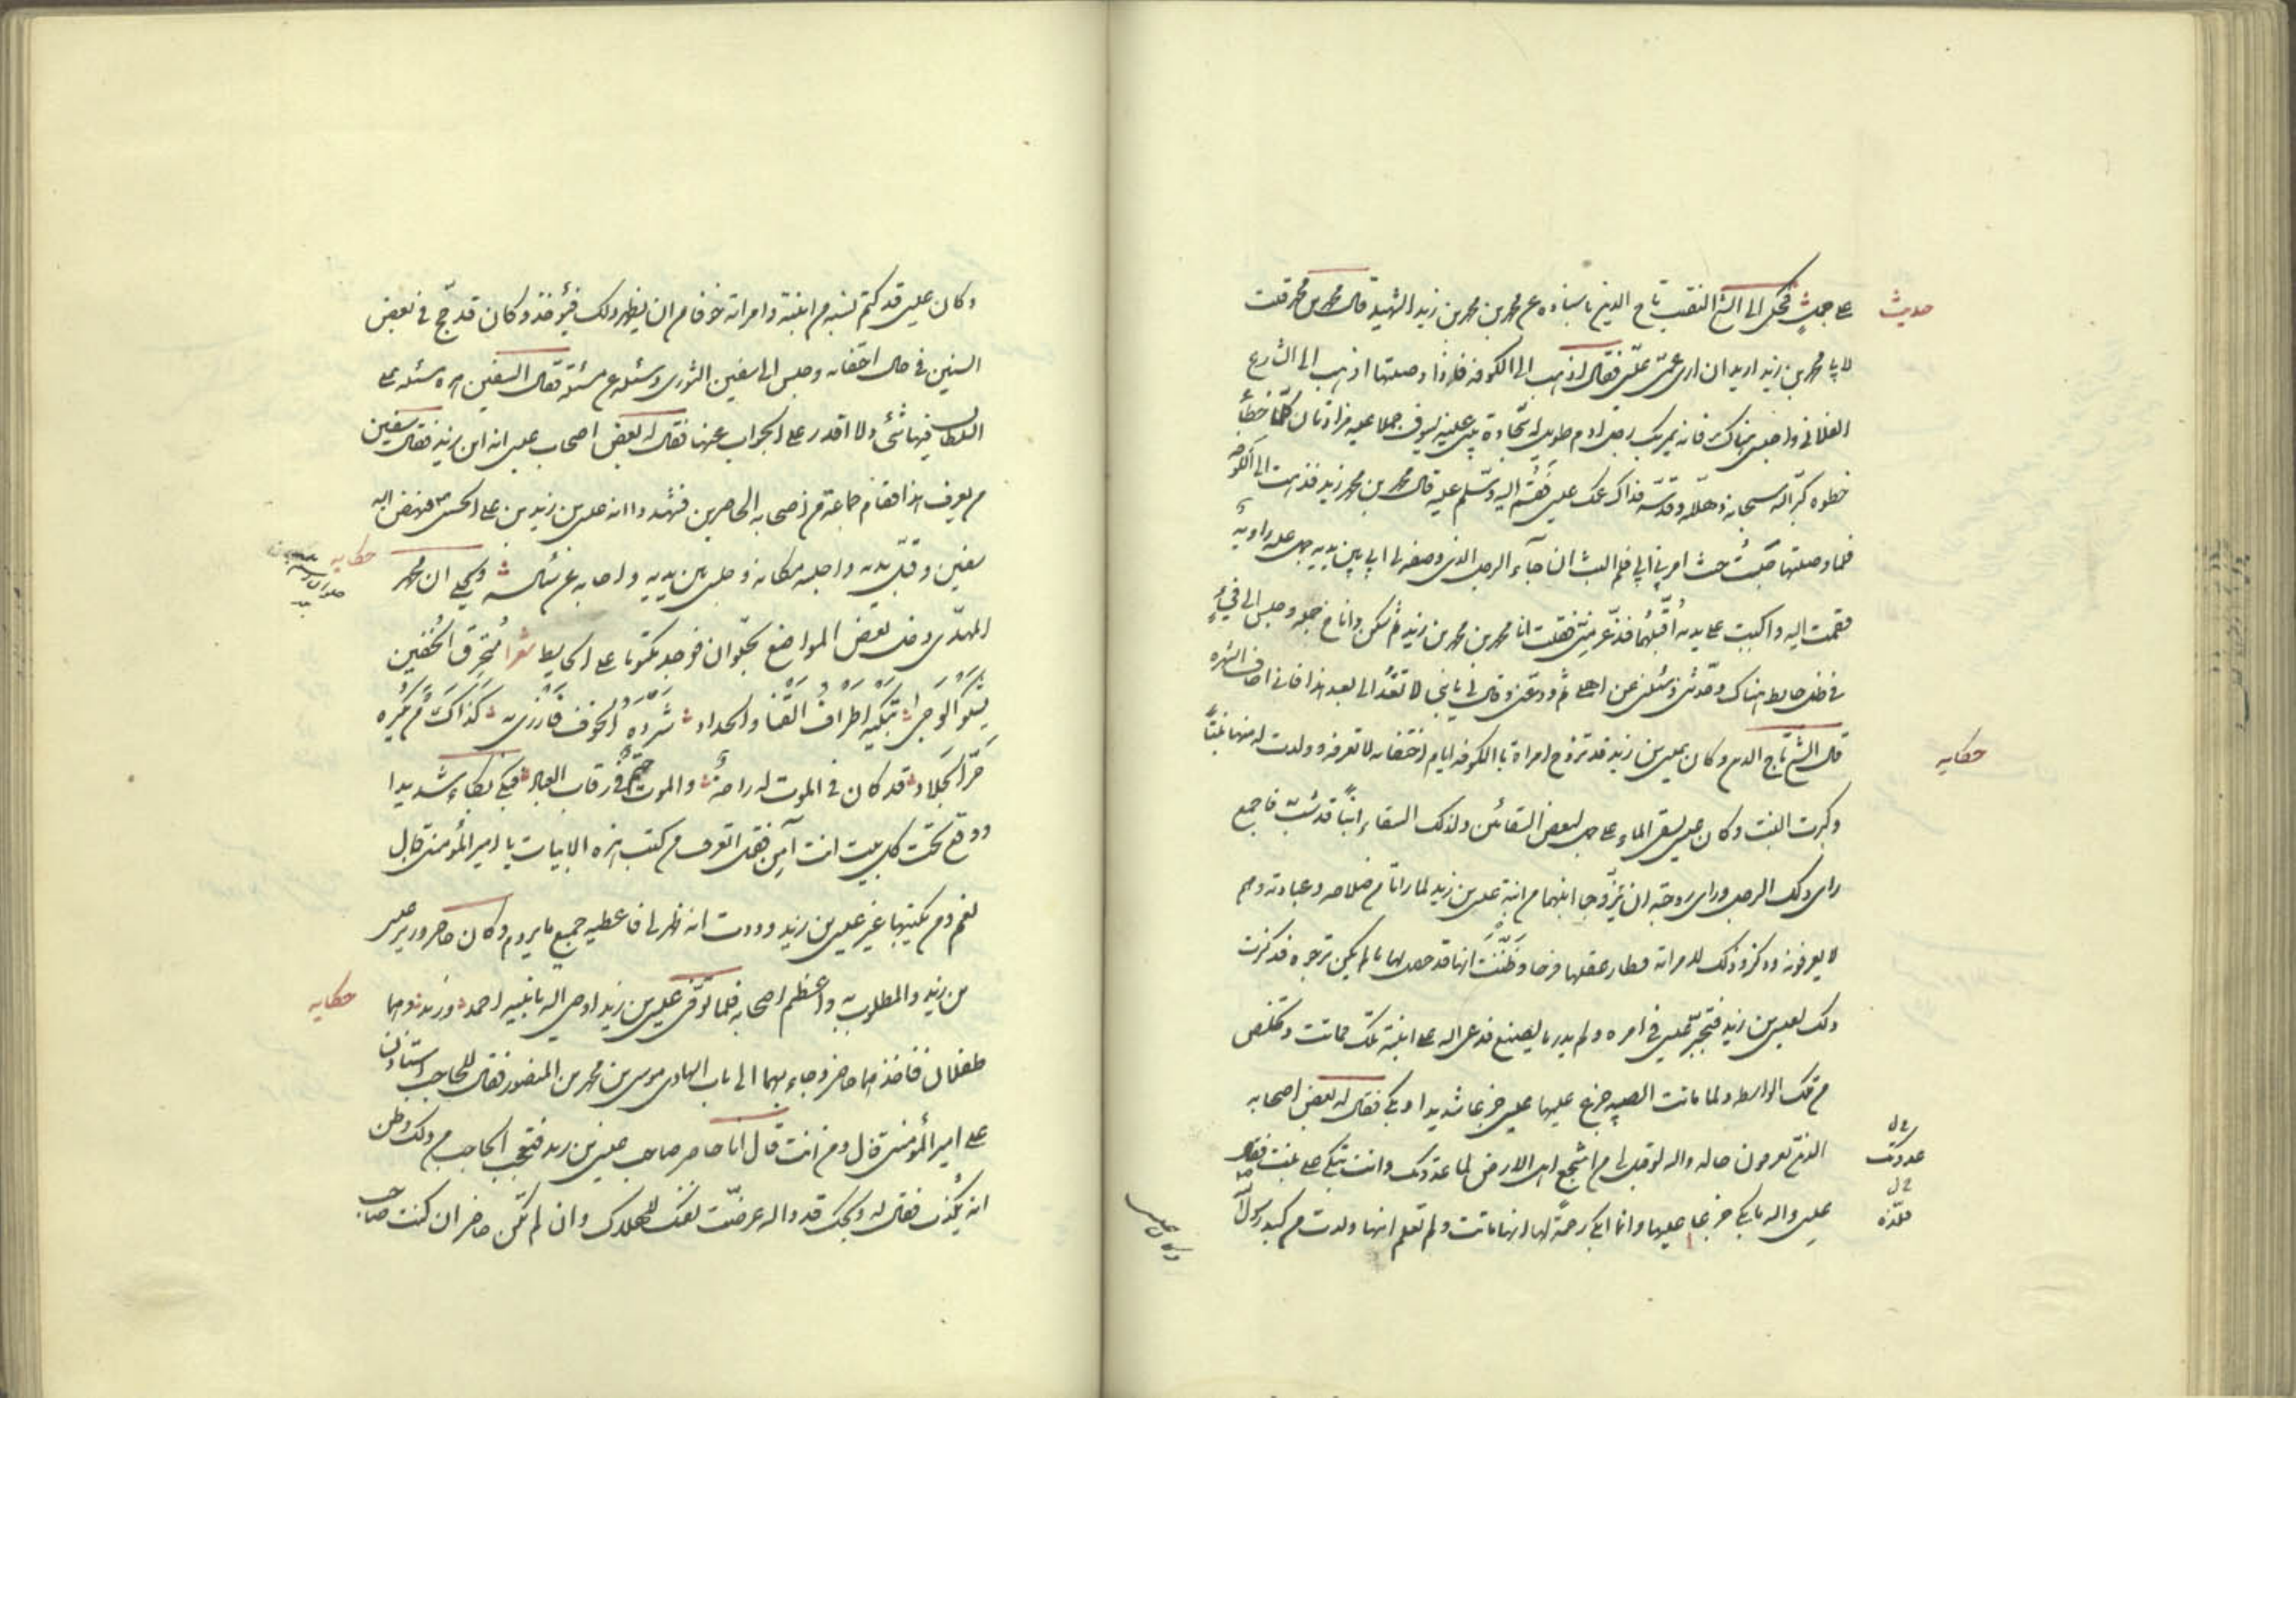 حديث
على جمل فحكى لى الشيخ النقيب تاج الدين باسناده عن محمد بن محمد بن زيد الشهيد قال محمد بن محمد قلت
لابى محمد بن زيد اريد ان ارى عمى عيسى فقال اذهب الى الكوفة فاذا وصلتها اذهب الى الشارع
الفلانى واجلس هناك فانه يمر بك رجل ادم طويل له سجادة بين عينيه يسوق جملا عليه مزادتان كلما خطا
خطوه كبر الله سبحانه وهلله وقدسه فذاك عمك عيسى فقم اليه وسلم عليه قال محمد بن محمد زيد فذهبت الى الكوفه
فلما وصلتها جلست حيث امرنى ابى فلم البث ان جآء الرجل الذى وصفه لى ابى بين يديه جمل عليه راوية
فقمت اليه واكببت على يديه اقبلهما فذعر منى فقلت انا محمد بن محمد بن زيد ثم سكن واناخ جمله وجلس الى فىء
فى ظل حايط هناك وحدثنى وسئلنى عن اهلى ثم ودعنى وقال لى يا بنى لا تعد الى بعد هذا فانى اخاف الشهره
حكايه
قال الشيخ تاج الدين وكان عيسى بن زيد قد تزوج امراة بالكوفه ايام اختفائه لا تعرفه وولدت له منها بنتاً
وكبرت البنت وكان عيسى يسقى الماء على جمل لبعض السقائين ولذلك السقاء ابناً قد شب فاجمع
راى ذلك الرجل وراى زوجته ان يزوجا ابنهما من ابنة عيسى بن زيد لما راتا من صلاحه وعبادته وهم
لا يعرفونه وذكروا ذلك لامراته فطار عقلها فرحا وظننت انها قد حصل لها ما لم يكن ترجوه فذكرت
ذلك لعيسى بن زيد فتحير عيسى فى امره ولم يدر ما يصنع فدعى الله على ابنته تلك فماتت وتخلص
من تلك الواسطه ولما ماتت الصبيه جزع عليها عيسى جزعا شديدا وبكى فقال له بعض اصحابه
الذى يعرفون حاله والله لو قيل لى من اشجع اهل الارض لما عدوتك وانت تبكى على بنت فقال
عيسى والله ما ابكى جزعا عليها وانما ابكى رحمة لها انها ماتت ولم تعلم انها ولدت من كبد رسول الله
عدوتك
وكان عيسى قد كتم نسبه من ابنته وامراته خوفا من ان يظهر ذلك فيؤخذ وكان قد حج فى بعض
السنين فى حال اختفائه وجلس الى سفين الثورى وسئله عن مسئلة فقال السفين هذه مسئله على
السلطان فيها شئ ولا اقدر على الجواب عنها فقال له بعض اصحاب عيسى انه ابن زيد فقال سفين
من يعرف هذا فقام جماعة من اصحابه الحاضرين فشهدوا انه عيسى بن زيد بن على الحسين فنهض اليه
سفين وقبل يديه واجلسه مكانه وجلس بين يديه واجابه عن مسئله ويحكى ان محمد
حكايه
المهدى دخل بعض المواضع بحلوان فوجد مكتوبا على الحايط شعرا منخرق الخفين
يشكو الوجى تنكبه اطراف القنا والحداد شرده الخوف فازرى به كذاك من يكره
حر الجلاد قد كان فى الموت له راحة والموت حتم فى رقاب العباد فبكى بكاء شديدا
ووقع تحت كل بيت انت آمن فقيل اتعرف من كتب هذه الابيات يا امير المؤمنين قال
نعم ومن يكتبها غير عيسى بن زيد ووددت انه ظهر لى فاعطيه جميع ما يروم وكان حاضر وزير عيسى
بن زيد والمطلوب به واعظم اصحابه فلما توفى عيسى بن زيد اوصى اليه بابنيه احمد وزيد وهما
حكايه
طفلان فاخذهما حاضر وجاء بهما الى باب الهادى موسى بن محمد بن المنصور فقال للحاجب استاذن
على امير المؤمنين قال ومن انت قال انا حاضر صاحب عيسى بن زيد فتعجب الحاجب من ذلك وظن
انه يكذب فقال له ويحك قد والله عرضت نفسك للهلاك وان لم تكن حاضر ان كنت صاحب